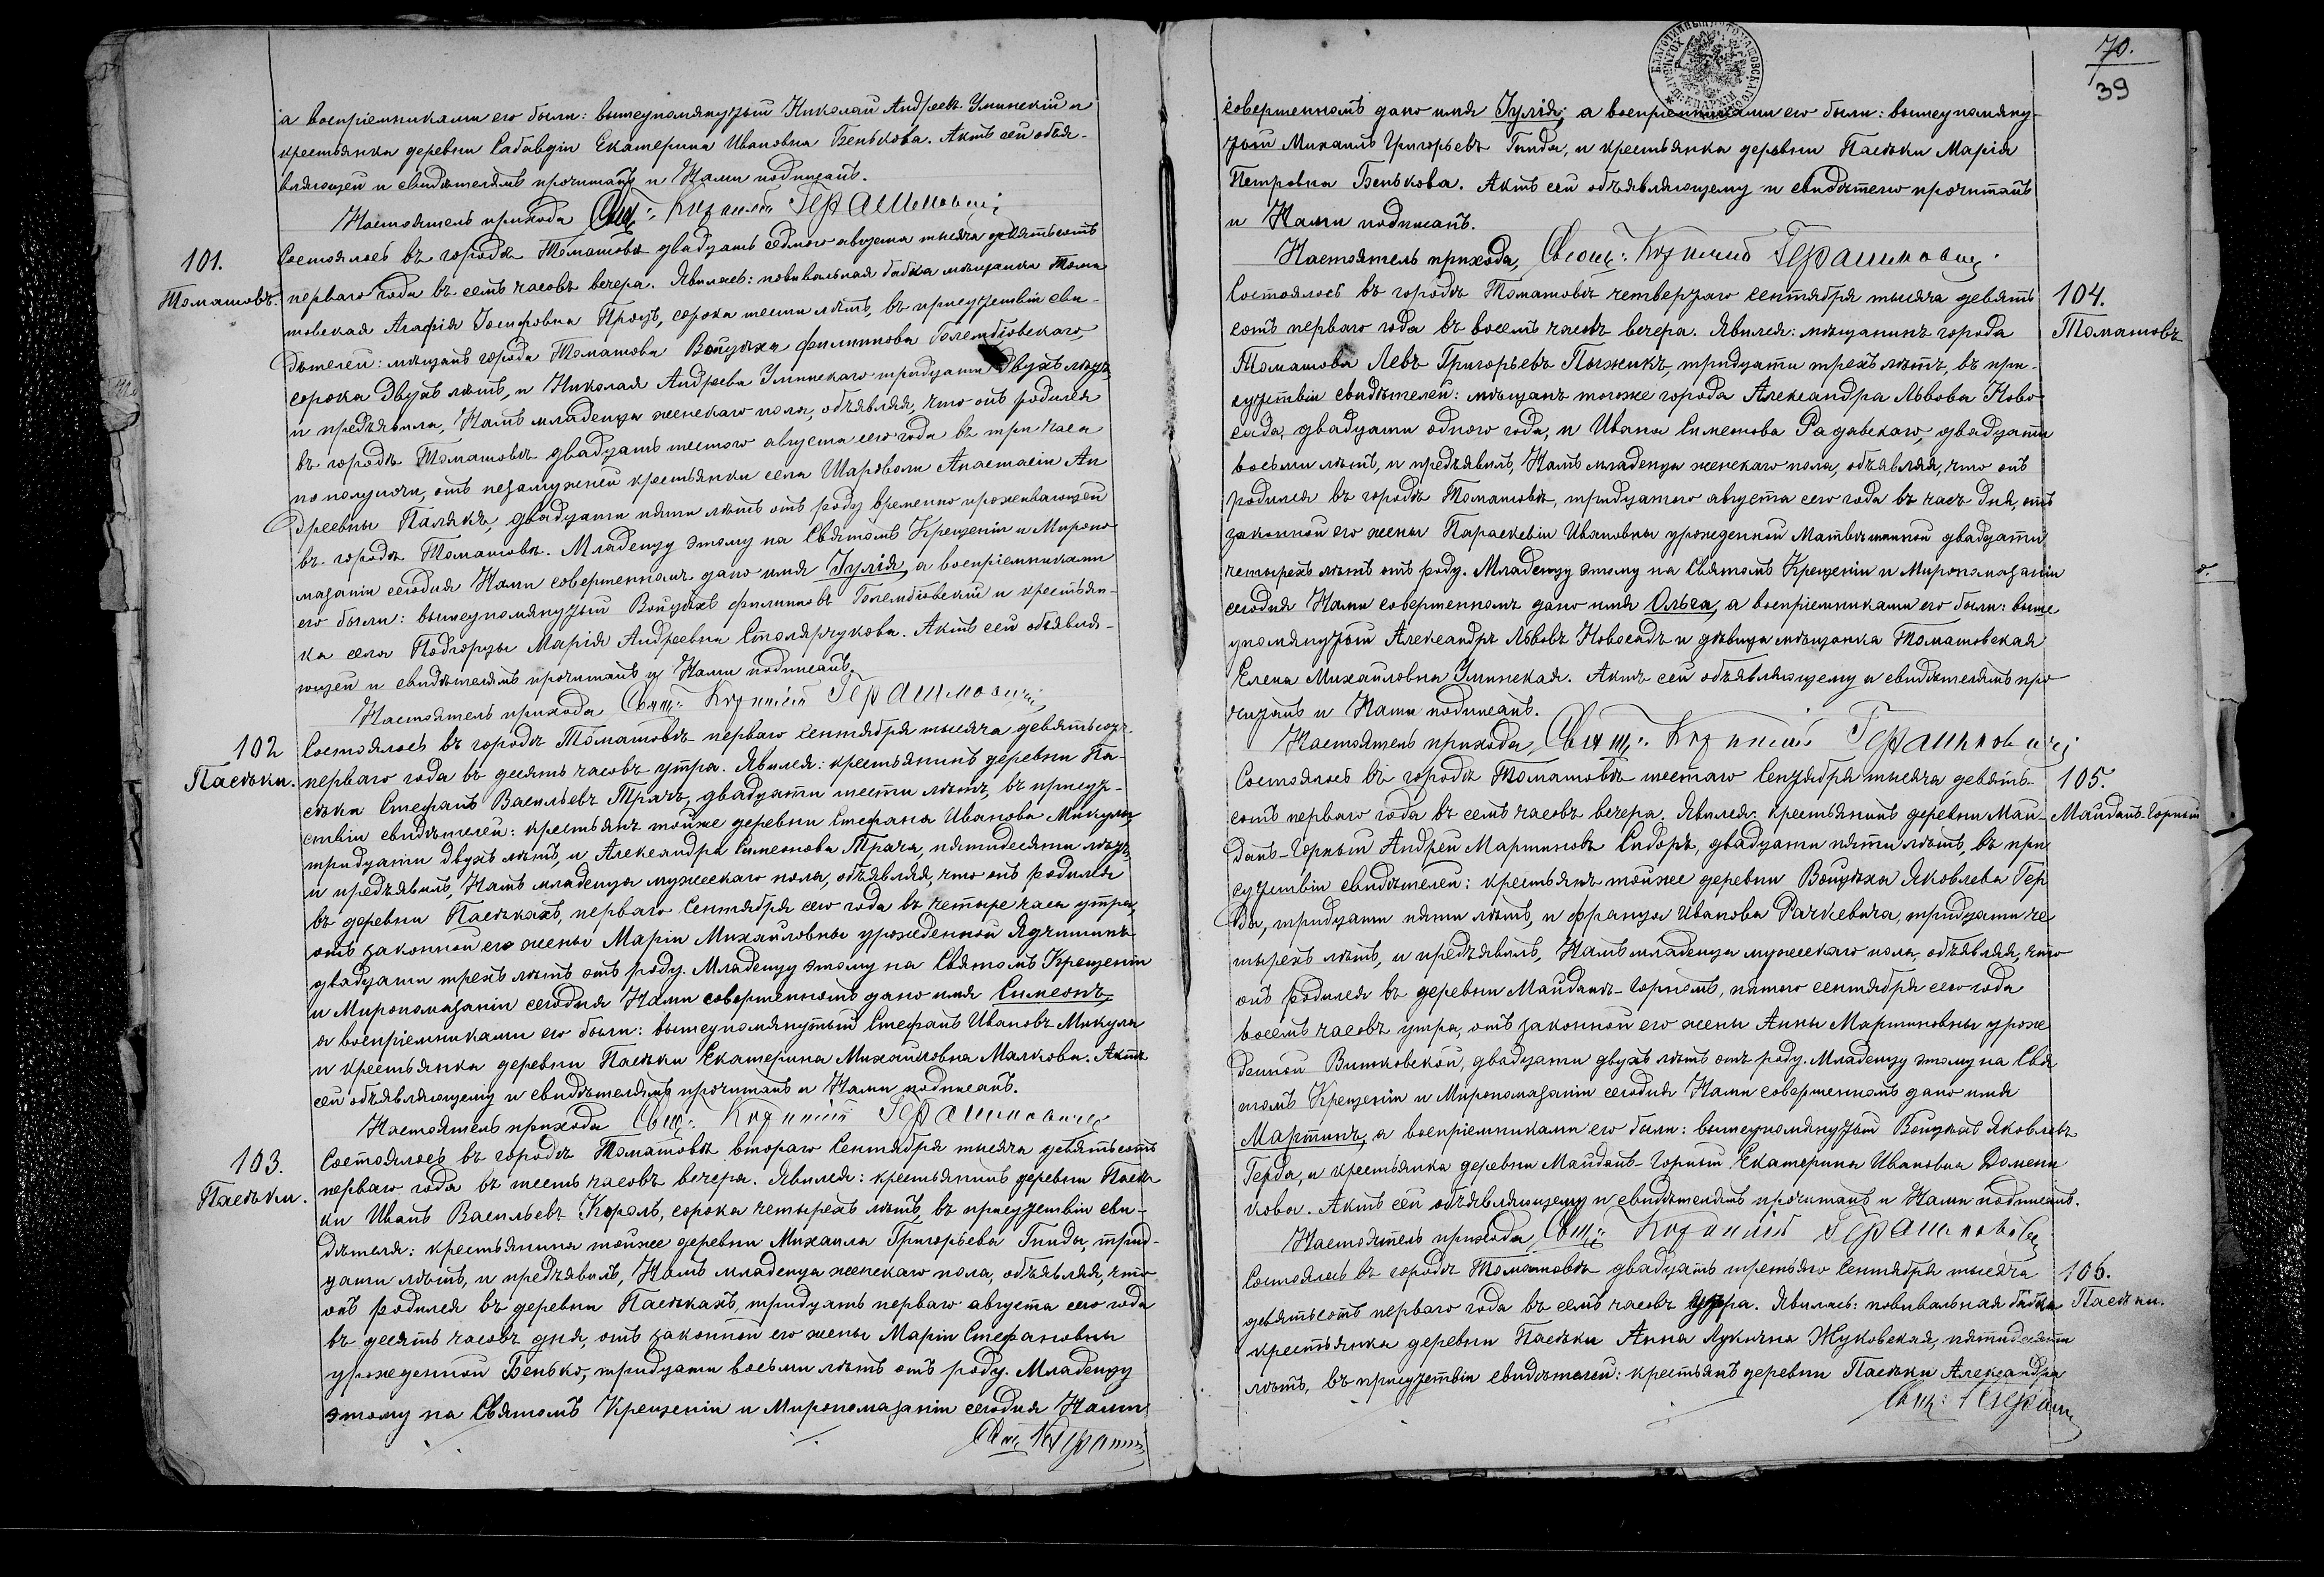 а воспріемниками его были: вышеупомянутый Николай Андреевъ Улинскій и
крестьянка деревни Сабавдіи Екатерина Ивановна Бенькова. Актъ сей объя-
вляющей и свидѣтелямъ прочитанъ и Нами подписанъ.
Настоятель прихода Свящ:
101.
Томашовъ.
Состоялось въ городѣ Томашовѣ двадцать седмого августа тысяча девятьсотъ
перваго года въ семь часовъ вечера. Явилась: повивальная бабка мѣщанка Тома
шовская Агафія Іосифовна Проць, сорока шести лѣтъ, въ присутствіи сви-
дѣтелей: мѣщанъ города Томашова Войцѣха Филиппова Голембіовскаго,
сорока двухъ лѣтъ, и Николая Андреева Улинскаго тридцати двухъ лѣтъ,
и предъявила, Намъ младенца женскаго пола, объявляя, что онъ родился
въ городѣ Томашовѣ двадцать шестого августа сего года въ три часа
по полуночи, отъ незамужней крестьянки села Шароволи Анастасіи Ан
дреевны Палякъ, двадцати пяти лѣтъ отъ роду временно проживающей
въ городѣ Томашовѣ. Младенцу этому на Святомъ Крещеніи и Миропо
мазаніи сегодня Нами совершенномъ дано имя Іулія, а воспріемниками
его были: вышеупомянутый Войцѣхъ Филипповъ Голембіовскій и крестьян-
ка села Подгорцы Марія Андреевна Столярчукова. Актъ сей объявля-
ющей и свидѣтелямъ прочитанъ и Нами подписанъ.
Настоятель прихода Свящ:
102
Пасѣки.
Состоялось въ городѣ Томашовѣ перваго Сентября тысяча девятьсотъ
перваго года въ десять часовъ утра. Явился: крестьянинъ деревни Па-
сѣки Стефанъ Васильевъ Трачъ, двадцати шести лѣтъ, въ присут-
ствіи свидѣтелей: крестьянъ тойже деревни Стефана Иванова Микулы,
тридцати двухъ лѣтъ, и Александра Симеонова Трача, пятидесяти лѣтъ,
и предъявилъ, Намъ младенца мужескаго пола, объявляя, что онъ родился
въ деревни Пасѣкахъ, перваго Сентября сего года въ четыре часа утра,
отъ законной его жены Маріи Михайловны урожденной Ядчишинъ
двадцати трехъ лѣтъ отъ роду. Младенцу этому на Святомъ Крещеніи
и Миропомазаніи сегодня Нами совершенномъ дано имя Симеонъ,
а воспріемниками его были: вышеупомянутый Стефанъ Ивановъ Микула
и крестьянка деревни Пасѣки Екатерина Михайловна Малкова. Актъ
сей объявляющему и свидѣтелямъ прочитанъ и Нами подписанъ.
Настоятель прихода Свящ:
103.
Пасѣки.
Состоялось въ городѣ Томашовѣ второго Сентября тысяча девятьсотъ
перваго года въ шесть часовъ вечера. Явился: крестьянинъ деревни Пасѣ
ки Иванъ Васильевъ Король, сорока четырехъ лѣтъ, въ присутствіи сви-
дѣтеля: крестьянина тойже деревни Михаила Григорьева Гнида, трид-
цати лѣтъ, и предъявилъ, Намъ младенца женскаго пола, объявляя, что
онъ родился въ деревни Пасѣкахъ, тридцать перваго августа сего года
въ десять часовъ дня, отъ законной его жены Маріи Стефановны
урожденной Бенько, тридцати восьми лѣтъ отъ роду. Младенцу
этому на Святомъ Крещеніи и Миропомазаніи сегодня Нами
70.
39
совершенномъ дано имя Іулія, а воспріемниками его были: вышеупомяну-
тый Михаилъ Григорьевъ Гнида, и крестьянка деревни Пасѣки Марія
Петровна Бенькова. Актъ сей объявляющему и свидѣтелю прочитанъ
и Нами подписанъ.
Настоятель прихода, Свящ:
104.
Томашовъ
Состоялось въ городѣ Томашовѣ четвертаго Сентября тысяча девять
сотъ перваго года въ восемь часовъ вечера. Явился: мѣщанинъ города
Томашова Левъ Григорьевъ Пыжикъ, тридцати трехъ лѣтъ, въ при-
сутствіи свидѣтелей: мѣщанъ тогоже города Александра Львова Ново
сада, двадцати одного года, и Ивана Симеонова Радавскаго, двадцати
восьми лѣтъ, и предъявилъ, Намъ младенца женскаго пола, объявляя, что онъ
родился въ городѣ Томашовѣ, тридцатого августа сего года въ часъ дня, отъ
законной его жены Параскевіи Ивановны урожденной Матвѣишиной двадцати
четырехъ лѣтъ отъ роду. Младенцу этому на Святомъ Крещеніи и Миропомазаніи
сегодня Нами совершенномъ дано имя Ольга, а воспріемниками его были: выше
упомянутый Александръ Львовъ Новосадъ и дѣвица мѣщанка Томашовская
Елена Михайловна Улинская. Актъ сей объявляющему и свидѣтелямъ про
читанъ и Нами подписанъ.
Настоятель прихода, Свящ:
105.
Майданъ-Горный
Состоялось въ городѣ Томашовѣ шестаго Сентября тысяча девять-
сотъ перваго года въ семь часовъ вечера. Явился: крестьянинъ деревни Май-
данъ-Горный Андрей Мартиновъ Сидоръ, двадцати пяти лѣтъ, въ при
сутствіи свидѣтелей: крестьянъ тойже деревни Войцѣха Яковлева Гер
ды, тридцати пяти лѣтъ, и Франца Иванова Рачкевича, тридцати че
тырехъ лѣтъ, и предъявилъ, Намъ младенца мужескаго пола, объявляя, что
онъ родился въ деревни Майданъ-Горномъ, пятого сентября сего года
восемь часовъ утра, отъ законной его жены Анны Мартиновны урож
денной Витковской, двадцати двухъ лѣтъ отъ роду. Младенцу этому на Свя
томъ Крещеніи и Миропомазаніи сегодня Нами совершенномъ дано имя
Мартинъ, а воспріемниками его были: вышеупомянутый Войцѣхъ Яковлевъ
Герда, и крестьянка деревни Майданъ-Горный Екатерина Ивановна Домени
кова. Актъ сей объявляющему и свидѣтелямъ прочитанъ и Нами подписанъ.
Настоятель прихода, Свящ:
106.
Пасѣки.
Состоялось въ городѣ Томашовѣ двадцать третьяго Сентября тысяча
девятьсотъ перваго года въ семь часовъ утра. Явилась: повивальная бабка
крестьянка деревни Пасѣки Анна Лукична Жуковская, пятидесяти
лѣтъ, въ присутствіи свидѣтелей: крестьянъ деревни Пасѣки Александра